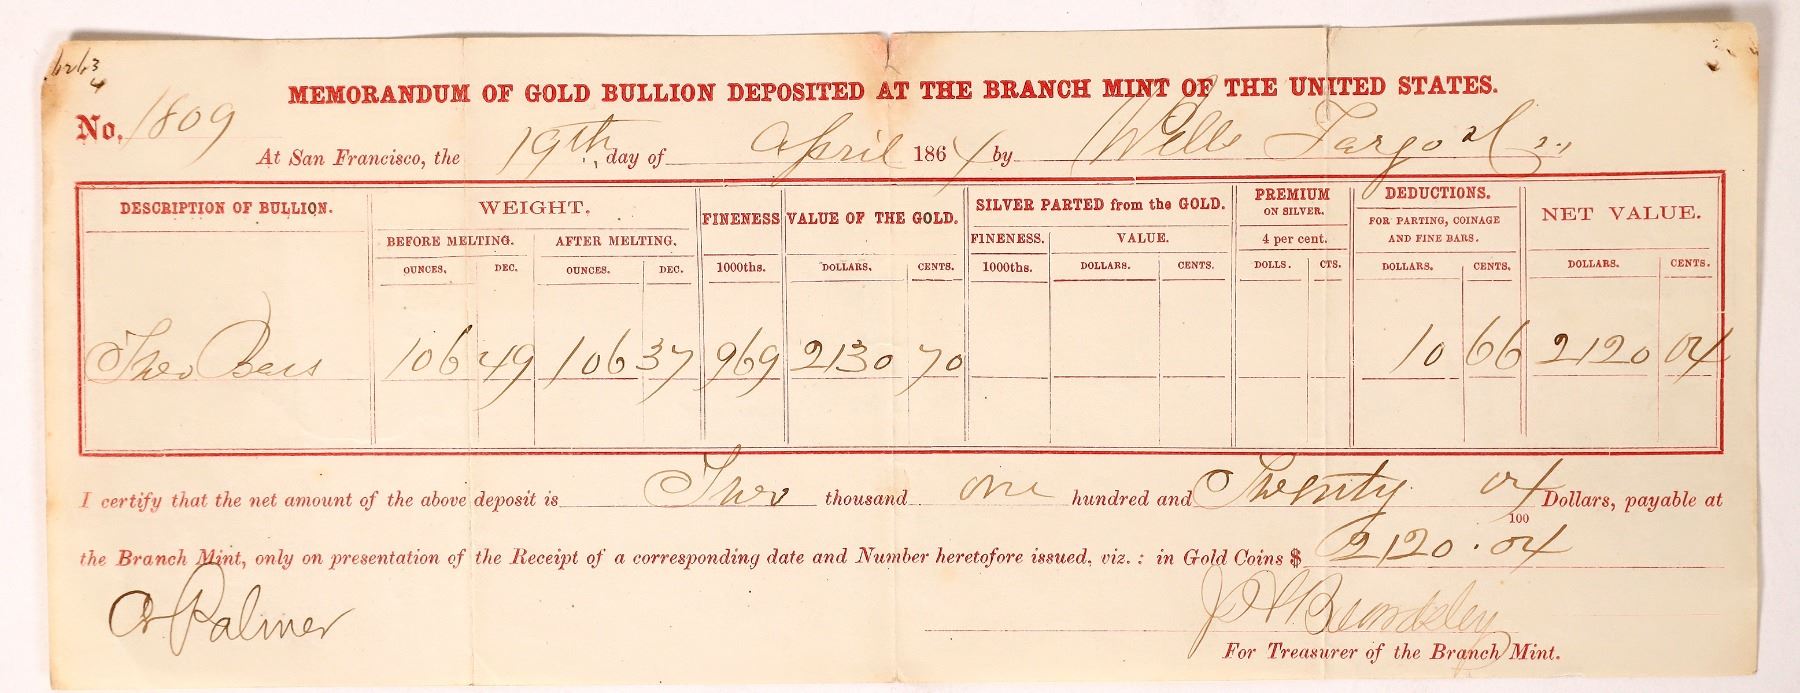 6263
4
MEMORANDUM OF GOLD BULLION DEPOSITED AT THE BRANCH MINT OF THE UNITED STATES.
No. 1809
At San Francisco, the 19th day of April 1864 by Wells Fargo & Co.,
DESCRIPTION OF BULLION. WEIGHT. FINENESS VALUE OF THE GOLD. SILVER PARTED from the GOLD. PREMIUM ON SILVER. DEDUCTIONS. NET VALUE.
BEFORE MELTING. AFTER MELTING. FINENESS. VALUE. 4 per cent. FOR PARTING, COINAGE AND FINE BARS.
OUNCES. DEC. OUNCES. DEC. 1000ths. DOLLARS. CENTS. 1000ths. DOLLARS. CENTS. DOLLS. CTS. DOLLARS. CENTS. DOLLARS. CENTS.
Two Bars 106 49 106 37 969 2130 70 10 66 2120 04
I certify that the net amount of the above deposit is Two thousand one hundred and Twenty 04/100 Dollars, payable at
the Branch Mint, only on presentation of the Receipt of a corresponding date and Number heretofore issued, viz.: in Gold Coins $ 2120.04
Palmer
For Treasurer of the Branch Mint.